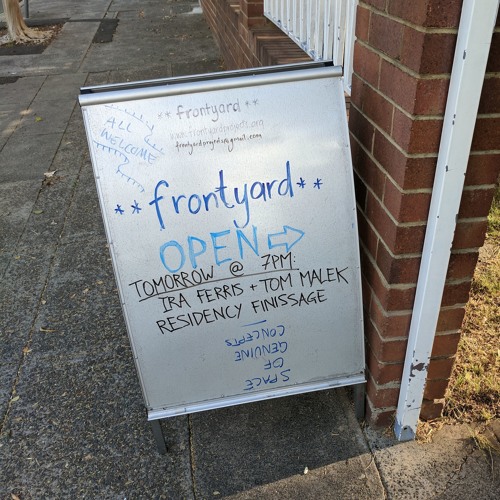 ** frontyard **
www.frontyardprojects.org
frontyardprojects@gmail.com
ALL
WELCOME
** frontyard **
OPEN
TOMORROW @ 7PM:
IRA FERRIS + TOM MALEK
RESIDENCY FINISSAGE
SPACE
OF
GENUINE
CONCEPTS